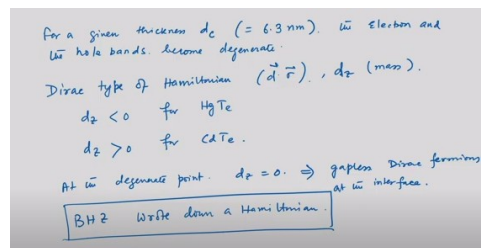 For a given thickness dc (= 6.3 nm). the electron and
the hole bands. become degenerate.
Dirac type of Hamiltonian (d⃗ σ⃗)., dz (mass).
dz < 0 for HgTe
dz > 0 for CdTe.
At the degenerate point. dz = 0. ⇒ gapless Dirac fermions
at the interface.
BHZ Wrote down a Hamiltonian.